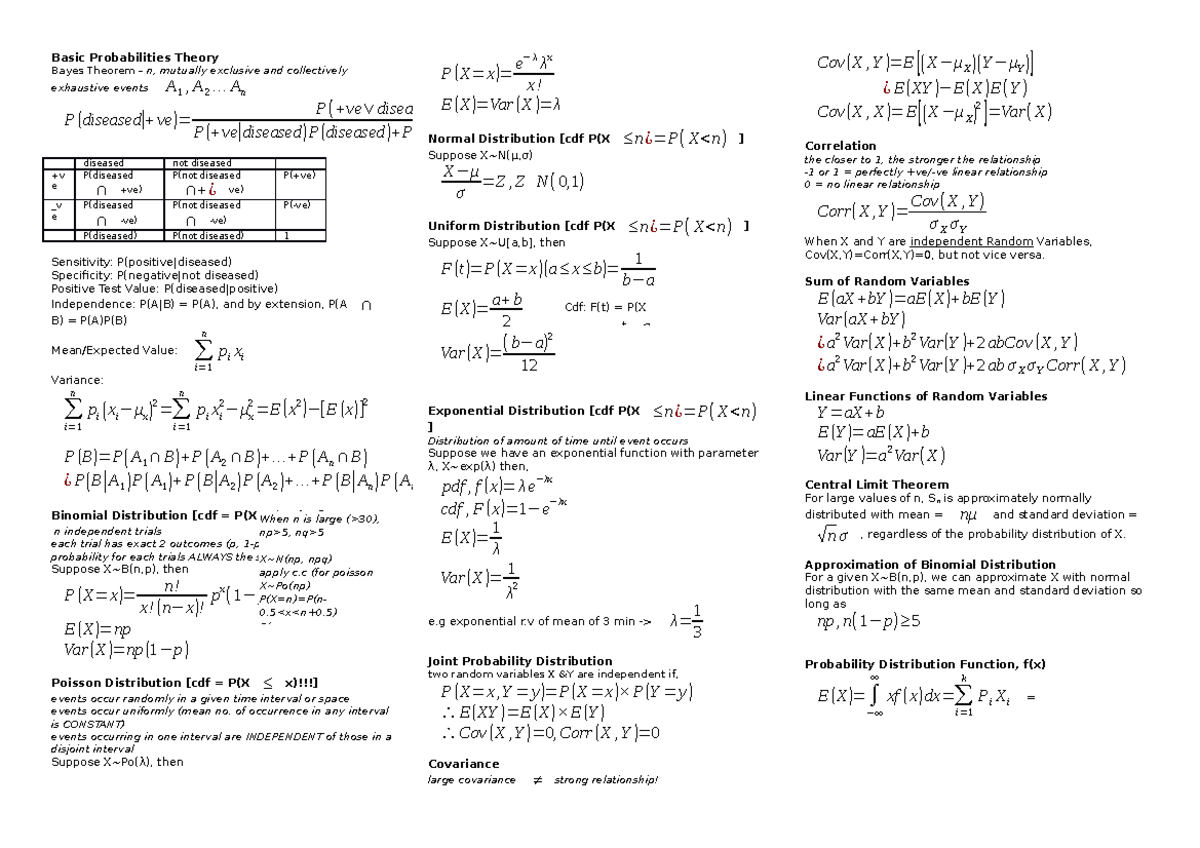 Basic Probabilities Theory
Bayes Theorem – n, mutually exclusive and collectively
exhaustive events A₁, A₂ … Aₙ
P(diseased|+ve)=P(+ve∨disea / P(+ve|diseased)P(diseased)+P
diseased not diseased
+ve P(diseased ∩ +ve) P(not diseased ∩+¿ ve) P(+ve)
_ve P(diseased ∩ -ve) P(not diseased ∩ -ve) P(-ve)
P(diseased) P(not diseased) 1
Sensitivity: P(positive|diseased)
Specificity: P(negative|not diseased)
Positive Test Value: P(diseased|positive)
Independence: P(A|B) = P(A), and by extension, P(A ∩
B) = P(A)P(B)
Mean/Expected Value: ∑ᵢ₌₁ⁿ pᵢxᵢ
Variance:
∑ᵢ₌₁ⁿ pᵢ(xᵢ−μₓ)²=∑ᵢ₌₁ⁿ pᵢxᵢ²−μₓ²=E(x²)−[E(x)]²
P(B)=P(A₁∩B)+P(A₂∩B)+…+P(Aₙ∩B)
¿P(B|A₁)P(A₁)+P(B|A₂)P(A₂)+…+P(B|Aₙ)P(A
Binomial Distribution [cdf = P(X
n independent trials
each trial has exact 2 outcomes (p, 1-p
probability for each trials ALWAYS the s
Suppose X~B(n,p), then
When n is large (>30),
np>5, nq>5
X~N(np, npq)
apply c.c (for poisson
X~Po(np)
P(X=n)=P(n-
0.5<x<n+0.5)
P(X=x)=n!/(x!(n−x)!) pˣ(1−
E(X)=np
Var(X)=np(1−p)
Poisson Distribution [cdf = P(X ≤ x)!!!]
events occur randomly in a given time interval or space
events occur uniformly (mean no. of occurrence in any interval
is CONSTANT)
events occurring in one interval are INDEPENDENT of those in a
disjoint interval
Suppose X~Po(λ), then
P(X=x)=e^(−λ)λˣ/x!
E(X)=Var(X)=λ
Normal Distribution [cdf P(X ≤n¿=P(X<n) ]
Suppose X~N(μ,σ)
(X−μ)/σ=Z, Z N(0,1)
Uniform Distribution [cdf P(X ≤n¿=P(X<n) ]
Suppose X~U[a,b], then
F(t)=P(X=x)(a≤x≤b)=1/(b−a)
E(X)=(a+b)/2 Cdf: F(t) = P(X
Var(X)=(b−a)²/12
Exponential Distribution [cdf P(X ≤n¿=P(X<n)
]
Distribution of amount of time until event occurs
Suppose we have an exponential function with parameter
λ, X~exp(λ) then,
pdf, f(x)=λe^(−λx)
cdf, F(x)=1−e^(−λx)
E(X)=1/λ
Var(X)=1/λ²
e.g exponential r.v of mean of 3 min -> λ=1/3
Joint Probability Distribution
two random variables X &Y are independent if,
P(X=x,Y=y)=P(X=x)×P(Y=y)
∴E(XY)=E(X)×E(Y)
∴Cov(X,Y)=0,Corr(X,Y)=0
Covariance
large covariance ≠ strong relationship!
Cov(X,Y)=E[(X−μ_X)(Y−μ_Y)]
¿E(XY)−E(X)E(Y)
Cov(X,X)=E[(X−μ_X)²]=Var(X)
Correlation
the closer to 1, the stronger the relationship
-1 or 1 = perfectly +ve/-ve linear relationship
0 = no linear relationship
Corr(X,Y)=Cov(X,Y)/(σ_Xσ_Y)
When X and Y are independent Random Variables,
Cov(X,Y)=Corr(X,Y)=0, but not vice versa.
Sum of Random Variables
E(aX+bY)=aE(X)+bE(Y)
Var(aX+bY)
¿a²Var(X)+b²Var(Y)+2abCov(X,Y)
¿a²Var(X)+b²Var(Y)+2abσ_Xσ_YCorr(X,Y)
Linear Functions of Random Variables
Y=aX+b
E(Y)=aE(X)+b
Var(Y)=a²Var(X)
Central Limit Theorem
For large values of n, Sₙ is approximately normally
distributed with mean = nμ and standard deviation =
√nσ , regardless of the probability distribution of X.
Approximation of Binomial Distribution
For a given X~B(n,p), we can approximate X with normal
distribution with the same mean and standard deviation so
long as
np,n(1−p)≥5
Probability Distribution Function, f(x)
E(X)=∫₋∞^∞ xf(x)dx=∑ᵢ₌₁ᵏ PᵢXᵢ =